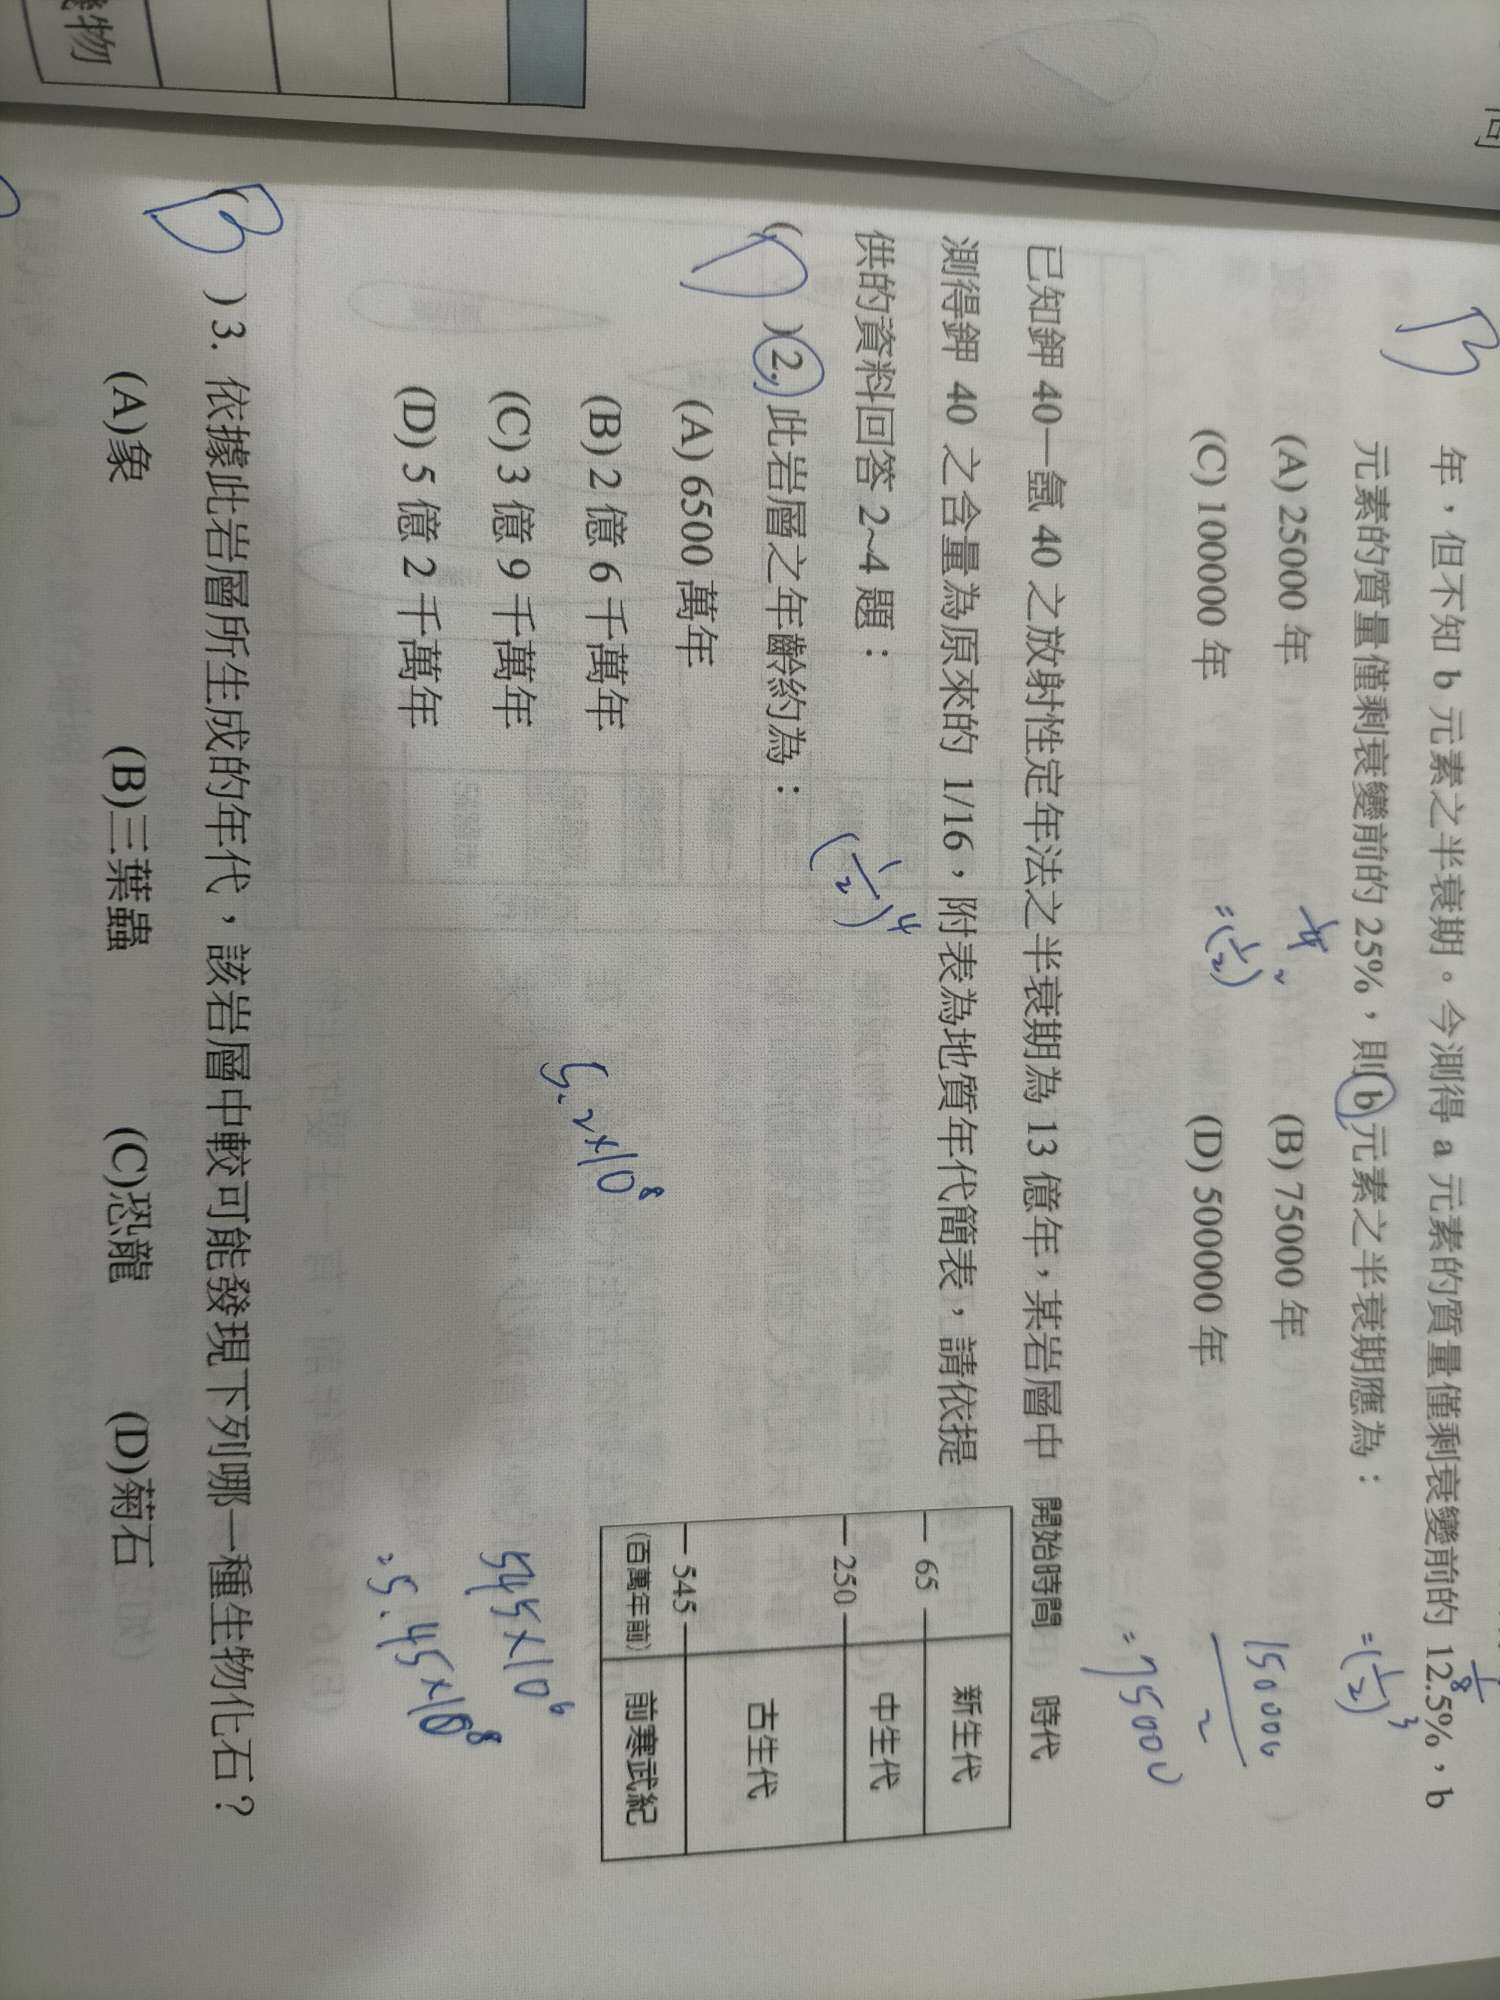 年，但不知 b 元素之半衰期。今測得 a 元素的質量僅剩衰變前的 12.5%，b
元素的質量僅剩衰變前的 25%，則 b 元素之半衰期應為：
(A) 25000 年 (B) 75000 年
(C) 100000 年 (D) 500000 年
B
1/8
=(1/2)³
1/4
=(1/2)²
150000
2
=75000
已知鉀 40—氬 40 之放射性定年法之半衰期為 13 億年，某岩層中
測得鉀 40 之含量為原來的 1/16，附表為地質年代簡表，請依提
供的資料回答 2~4 題：
開始時間 時代
新生代
65
中生代
250
古生代
545
(百萬年前) 前寒武紀
( D ) 2. 此岩層之年齡約為：
(1/2)⁴
(A) 6500 萬年
(B) 2 億 6 千萬年
(C) 3 億 9 千萬年
(D) 5 億 2 千萬年
5.2×10⁸
545×10⁶
=5.45×10⁸
( B ) 3. 依據此岩層所生成的年代，該岩層中較可能發現下列哪一種生物化石？
(A)象 (B)三葉蟲 (C)恐龍 (D)菊石
物